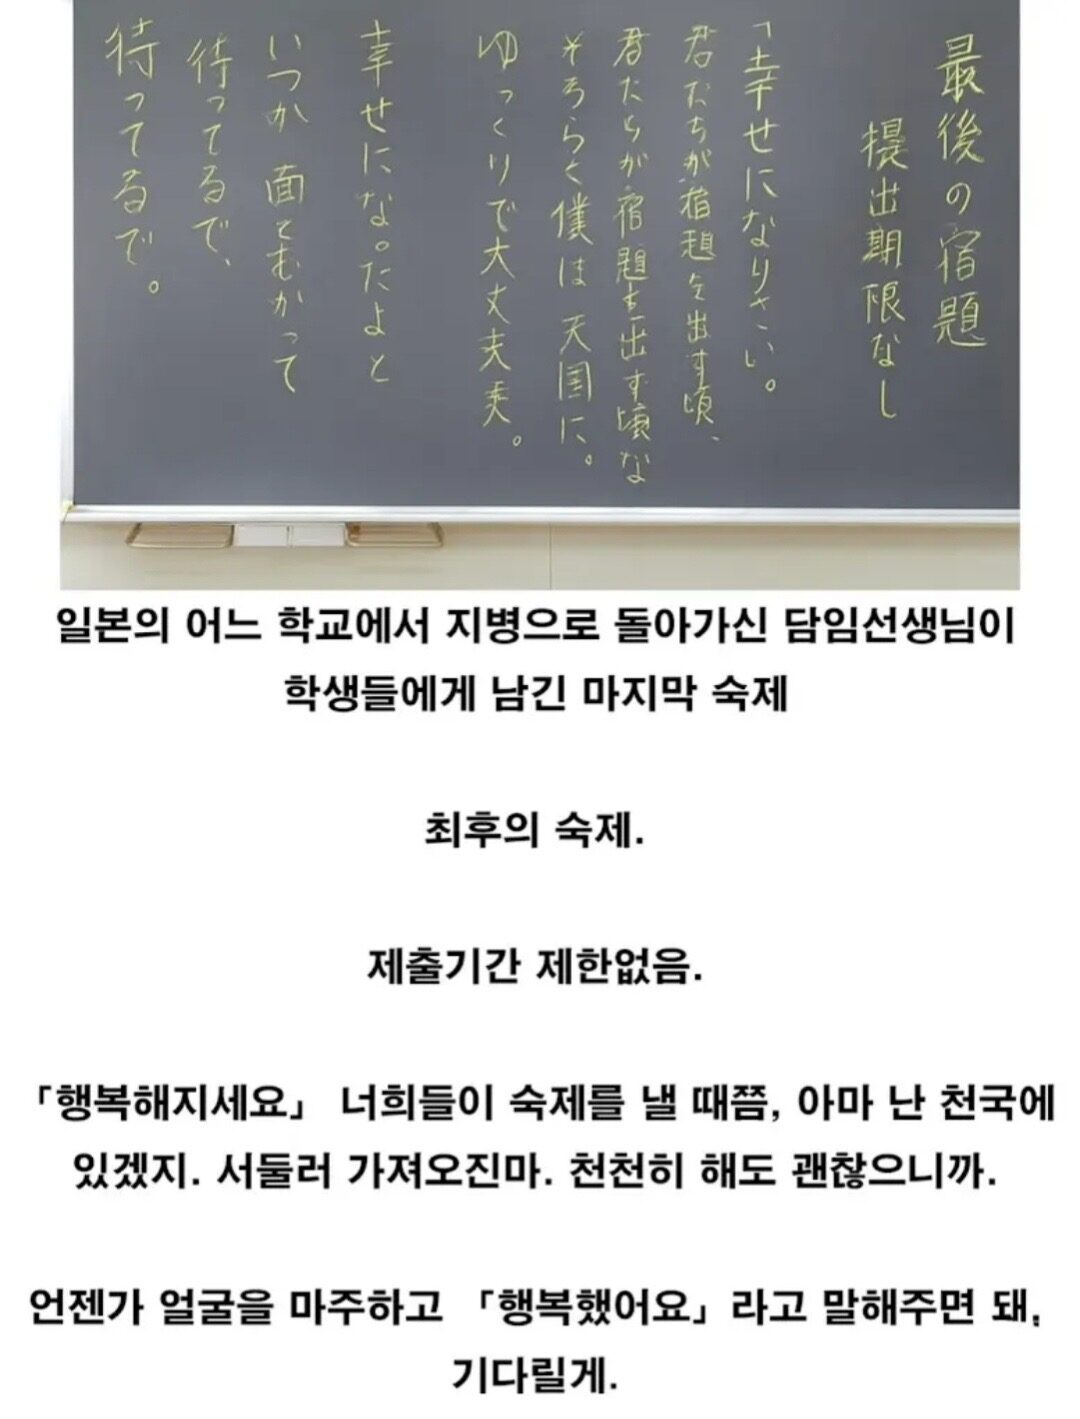 最後の宿題
提出期限なし
「幸せになりさい。
君たちが宿題を出す頃、
君たちが宿題を出す頃な
そろらく僕は天国に。
ゆっくりで大丈夫。
幸せにな。たよと
いつか面とむかって
待ってるで、
待ってるで。
일본의 어느 학교에서 지병으로 돌아가신 담임선생님이
학생들에게 남긴 마지막 숙제
최후의 숙제.
제출기간 제한없음.
「행복해지세요」 너희들이 숙제를 낼 때쯤, 아마 난 천국에
있겠지. 서둘러 가져오진마. 천천히 해도 괜찮으니까.
언젠가 얼굴을 마주하고 「행복했어요」라고 말해주면 돼;
기다릴게.